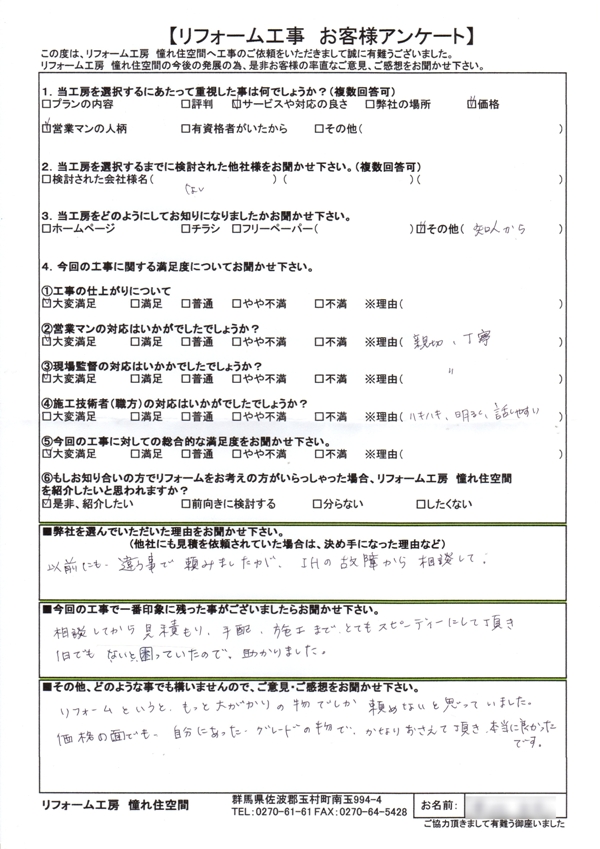 【リフォーム工事　お客様アンケート】
この度は、リフォーム工房　憧れ住空間へ工事のご依頼をいただきまして誠に有難うございました。
リフォーム工房　憧れ住空間の今後の発展の為、是非お客様の率直なご意見、ご感想をお聞かせ下さい。
1．当工房を選択するにあたって重視した事は何でしょうか？（複数回答可）
□プランの内容　□評判　☑サービスや対応の良さ　□弊社の場所　☑価格
☑営業マンの人柄　□有資格者がいたから　□その他(　)
2．当工房を選択するまでに検討された他社様をお聞かせ下さい。（複数回答可）
□検討された会社様名(　)(　)(　)
ない
3．当工房をどのようにしてお知りになりましたかお聞かせ下さい。
□ホームページ　□チラシ　□フリーペーパー(　)☑その他(　知人から　)
4．今回の工事に関する満足度についてお聞かせ下さい。
①工事の仕上がりについて
☑大変満足　□満足　□普通　□やや不満　□不満　※理由(　)
②営業マンの対応はいかがでしたでしょうか？
☑大変満足　□満足　□普通　□やや不満　□不満　※理由(　親切、丁寧　)
③現場監督の対応はいかかでしたでしょうか？
☑大変満足　□満足　□普通　□やや不満　□不満　※理由(　〃　)
④施工技術者（職方）の対応はいかがでしたでしょうか？
☑大変満足　□満足　□普通　□やや不満　□不満　※理由(ハキハキ、明るく、話しやすい)
⑤今回の工事に対しての総合的な満足度をお聞かせ下さい。
☑大変満足　□満足　□普通　□やや不満　□不満　※理由(　)
⑥もしお知り合いの方でリフォームをお考えの方がいらっしゃった場合、リフォーム工房　憧れ住空間
を紹介したいと思われますか？
☑是非、紹介したい　□前向きに検討する　□分らない　□したくない
■弊社を選んでいただいた理由をお聞かせ下さい。
（他社にも見積を依頼されていた場合は、決め手になった理由など）
以前にも、違う事で頼みましたが、IHの故障から相談して：
■今回の工事で一番印象に残った事がございましたらお聞かせ下さい。
相談してから見積もり、手配、施工まで、とてもスピーディーにして頂き
1日でもないと困っていたので、助かりました。
■その他、どのような事でも構いませんので、ご意見・ご感想をお聞かせ下さい。
リフォームというと、もっと大がかりの物でしか頼めないと思っていました。
価格の面でも、自分にあったグレードの物で、かなりおさえて頂き、本当に良かった
です。
リフォーム工房　憧れ住空間
群馬県佐波郡玉村町南玉994-4
TEL：0270-61-61 FAX：0270-64-5428
お名前：
ご協力頂きまして有難う御座いました